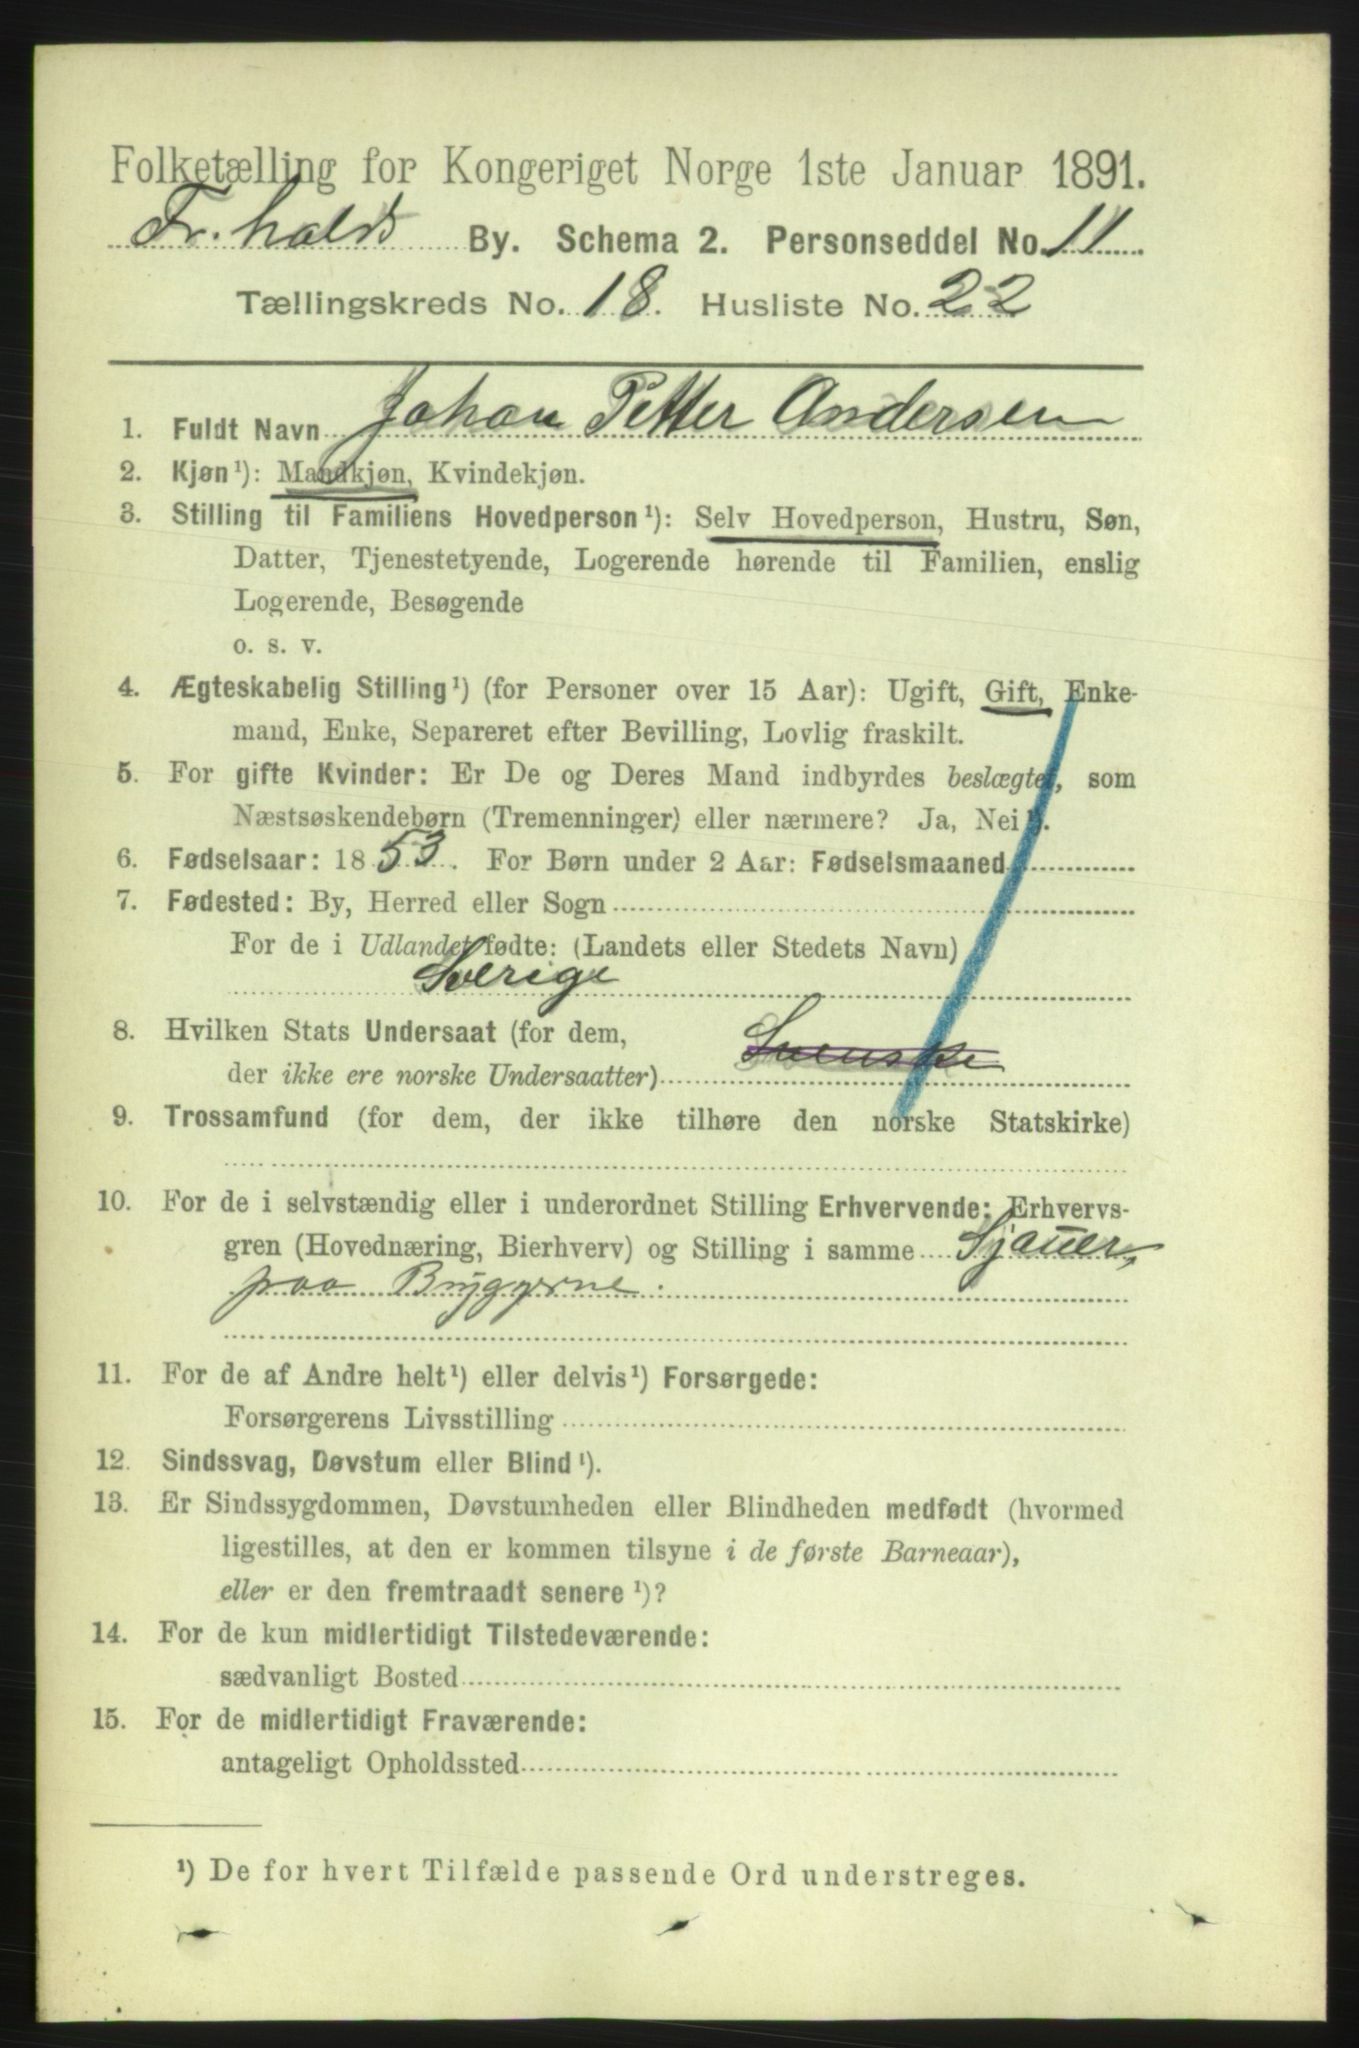 Folketælling for Kongeriget Norge 1ste Januar 1891.
Fr.halds By. Schema 2. Personseddel No. 11
Tællingskreds No. 18. Husliste No. 22
1. Fuldt Navn Johan Petter Andersen
2. Kjøn¹): Mandkjøn, Kvindekjøn.
3. Stilling til Familiens Hovedperson¹): Selv Hovedperson, Hustru, Søn,
Datter, Tjenestetyende, Logerende hørende til Familien, enslig
Logerende, Besøgende
o. s. v.
4. Ægteskabelig Stilling¹) (for Personer over 15 Aar): Ugift, Gift, Enke-
mand, Enke, Separeret efter Bevilling, Lovlig fraskilt.
5. For gifte Kvinder: Er De og Deres Mand indbyrdes beslægtet, som
Næstsøskendebørn (Tremenninger) eller nærmere? Ja, Nei¹).
6. Fødselsaar: 1853. For Børn under 2 Aar: Fødselsmaaned
7. Fødested: By, Herred eller Sogn
For de i Udlandet fødte: (Landets eller Stedets Navn)
Sverige
8. Hvilken Stats Undersaat (for dem,
der ikke ere norske Undersaatter) Svenske
9. Trossamfund (for dem, der ikke tilhøre den norske Statskirke)
10. For de i selvstændig eller i underordnet Stilling Erhvervende: Erhvervs-
gren (Hovednæring, Bierhverv) og Stilling i samme Sjauer,
paa Bryggerne.
11. For de af Andre helt¹) eller delvis¹) Forsørgede:
Forsørgerens Livsstilling
12. Sindssvag, Døvstum eller Blind¹).
13. Er Sindssygdommen, Døvstumheden eller Blindheden medfødt (hvormed
ligestilles, at den er kommen tilsyne i de første Barneaar),
eller er den fremtraadt senere¹)?
14. For de kun midlertidigt Tilstedeværende:
sædvanligt Bosted
15. For de midlertidigt Fraværende:
antageligt Opholdssted
¹) De for hvert Tilfælde passende Ord understreges.